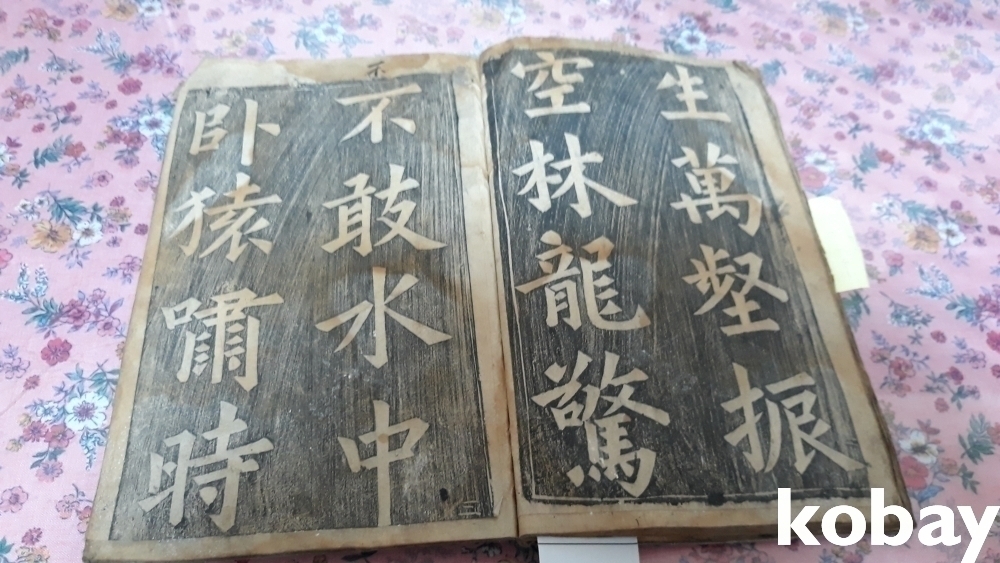 生萬壑振
空林龍驚
不敢水中
卧猿嘯時
不
三
kobay